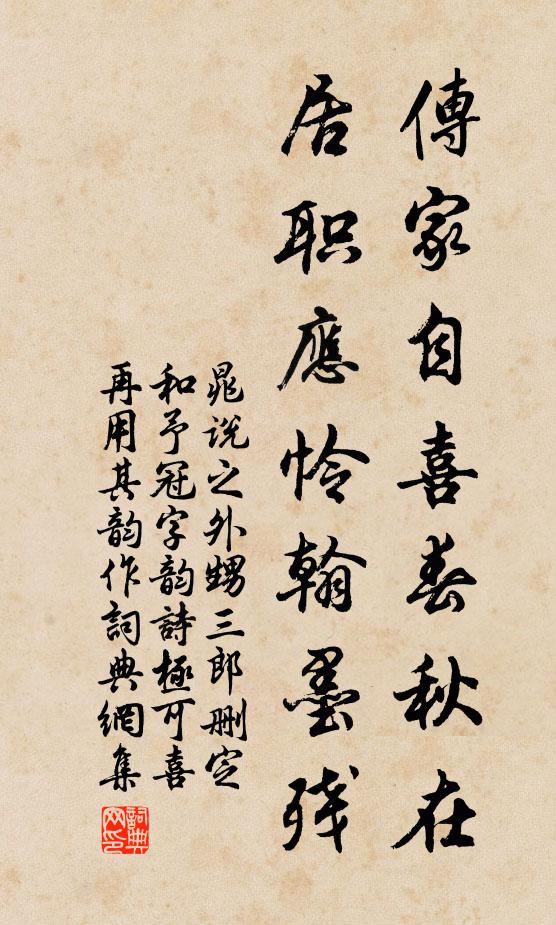 傳家自喜春秋在
居职應怜翰墨残
晁说之外甥三郎删定
和予冠字韵詩極可喜
再用其韵作詞典網集
詞典网印